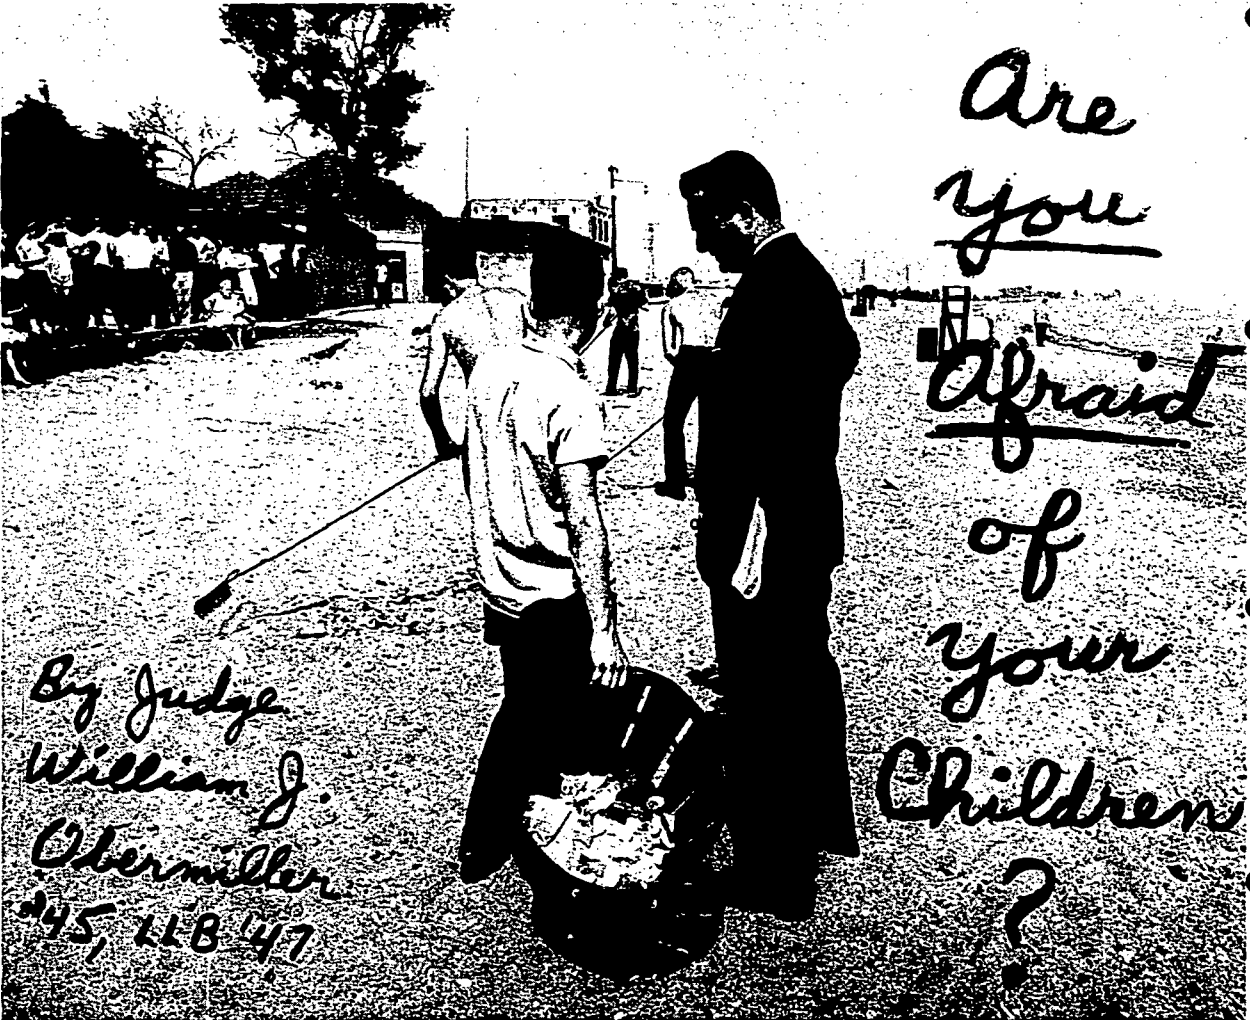 Are
you
Afraid
of
your
Children
?
By Judge
William J.
Obermiller
'45, LLB '47